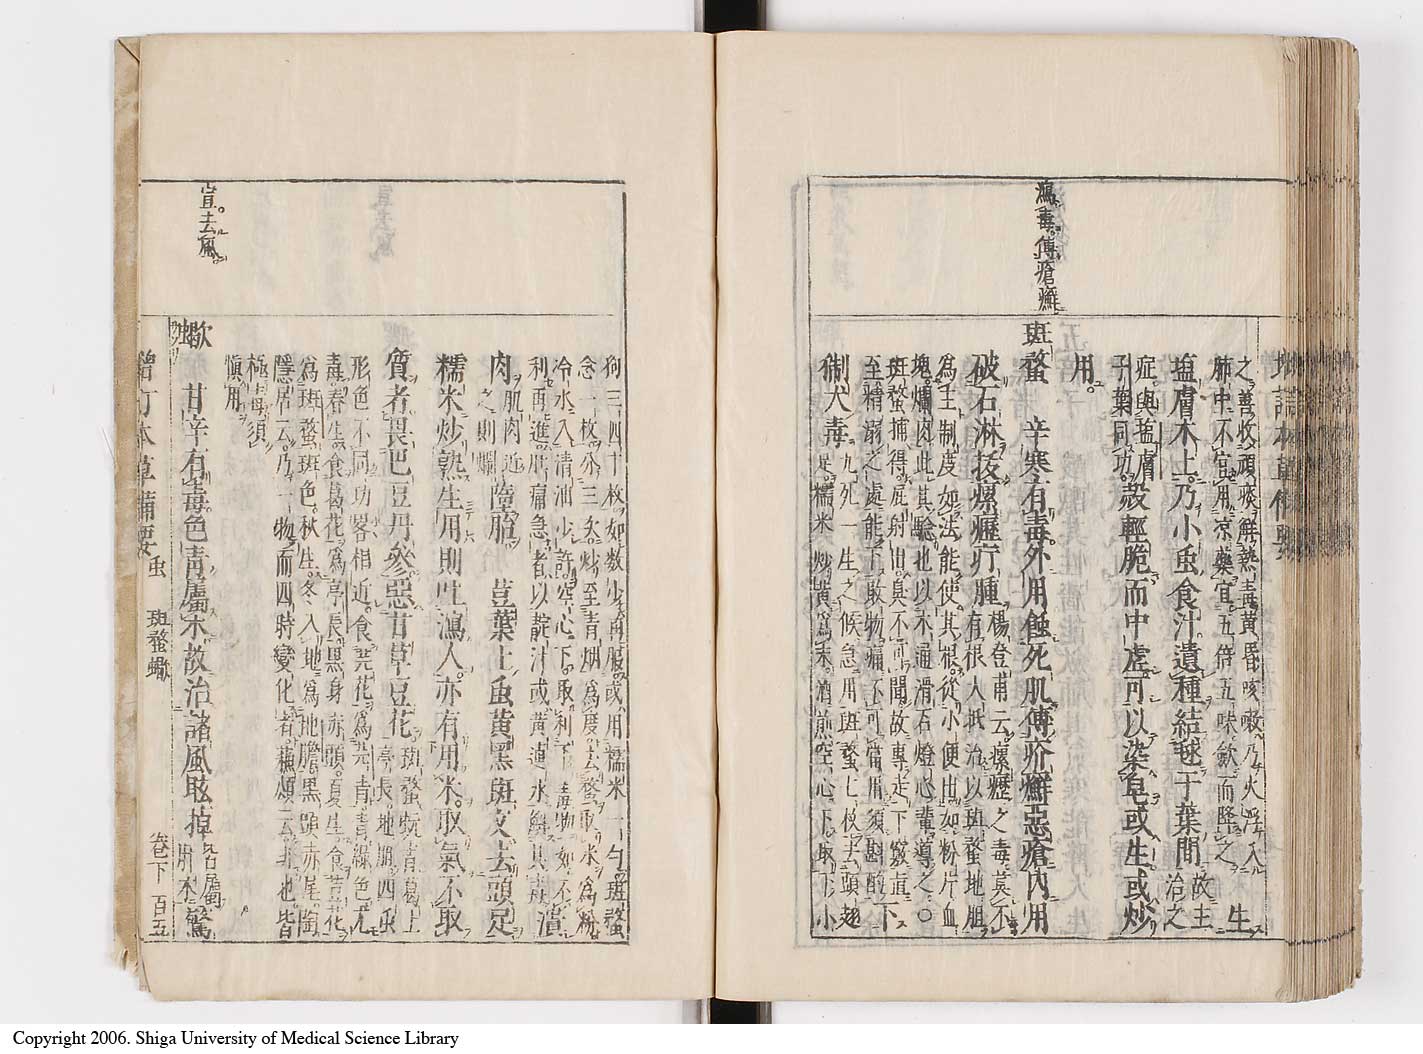 瀉毒。傅瘡癬
之善收頑痰解熱毒黃昏咳嗽乃火浮入
肺中不宜用凉藥宜五倍五味歛而降之
生
塩膚木上乃小虫食汁遺種結毬于葉間
故主治之
症與塩膚
子葉同功
殼輕脆而中虗可以染皂或生或炒
用。
斑蝥
辛寒有毒外用蝕死肌傅疥癬惡瘡内用
破石淋拔瘰癧疔腫
楊登甫云瘰癧之毒莫不
有根大抵治以斑蝥地胆
為主制度如法能使其根從小便出如粉片血
塊爛肉此其驗也以木通滑石燈心輩導之○
斑蝥捕得屁射出臭不可聞故專走下竅直
至精溺之處能下敗物痛不可當用須斟酌
下
制犬毒
九死一生之候急用斑蝥七枚去頭翅
足糯米炒黃為末酒煎空心下取下小
狗三四十枚如数少再服或用糯米一勺斑蝥
念一枚分三次炒至青烟為度去蝥取米為粉
冷水入清油少許空心下取利下毒物如不
利再進腸痛急者以靛汁或黃連水解其毒
潰
肉
肌肉近
之則爛
墮胎
荳葉上虫黃黑斑文去頭足
糯米炒熟生用則吐瀉人亦有用米取氣不取
質者畏巴豆丹參惡甘草豆花
斑蝥蚖青葛上
亭長地胆四虫
形色不同功畧相近食芫花為芫青青綠色尤
毒春生食葛花為亭長黑身赤頭夏生食荳花
為斑蝥斑色秋生冬入地為地膽黑頭赤尾陶
隱居云乃一物而四時變化者蘇頌云非也皆
極毒須
愼用
宣去風
蠍
甘辛有毒色青屬木故治諸風眩掉
皆屬
肝木
驚
增訂本草備要
虫
斑蝥蠍
卷下
百五
Copyright 2006. Shiga University of Medical Science Library